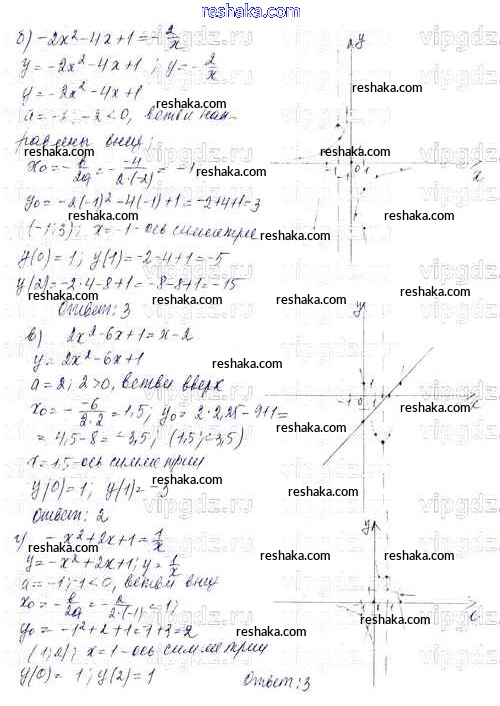 б) -2x²-4x+1 = -2/x
y = -2x²-4x+1 ; y = -2/x
y = -2x²-4x+1
a = -2; -2<0, ветви нап-
равлены вниз;
x₀ = -b/2a = -(-4)/(2·(-2)) = -1
y₀ = -2(-1)²-4(-1)+1 = -2+4+1=3
(-1; 3); x = -1 - ось симметрии
y(0) = 1; y(1) = -2-4+1 = -5
y(2) = -2·4-8+1 = -8-8+1 = -15
Ответ: 3
в) 2x²-6x+1 = x-2
y = 2x²-6x+1
a = 2; 2>0, ветви вверх
x₀ = -(-6)/(2·2) = 1,5; y₀ = 2·2,25-9+1 =
= 4,5-8 = -3,5; (1,5; -3,5)
x = 1,5 - ось симметрии
y(0) = 1; y(1) = -3
Ответ: 2
г) -x²+2x+1 = 1/x
y = -x²+2x+1; y = 1/x
a = -1; -1<0, ветви вниз
x₀ = -b/2a = -2/(2·(-1)) = 1;
y₀ = -1²+2+1 = -1+3 = 2
(1; 2); x = 1 - ось симметрии
y(0) = 1; y(2) = 1
Ответ: 3
y
x
-1
0
1
-1
y
x
-1
0
1
1
y
x
-1
0
1
reshaka.com
vipgdz.ru